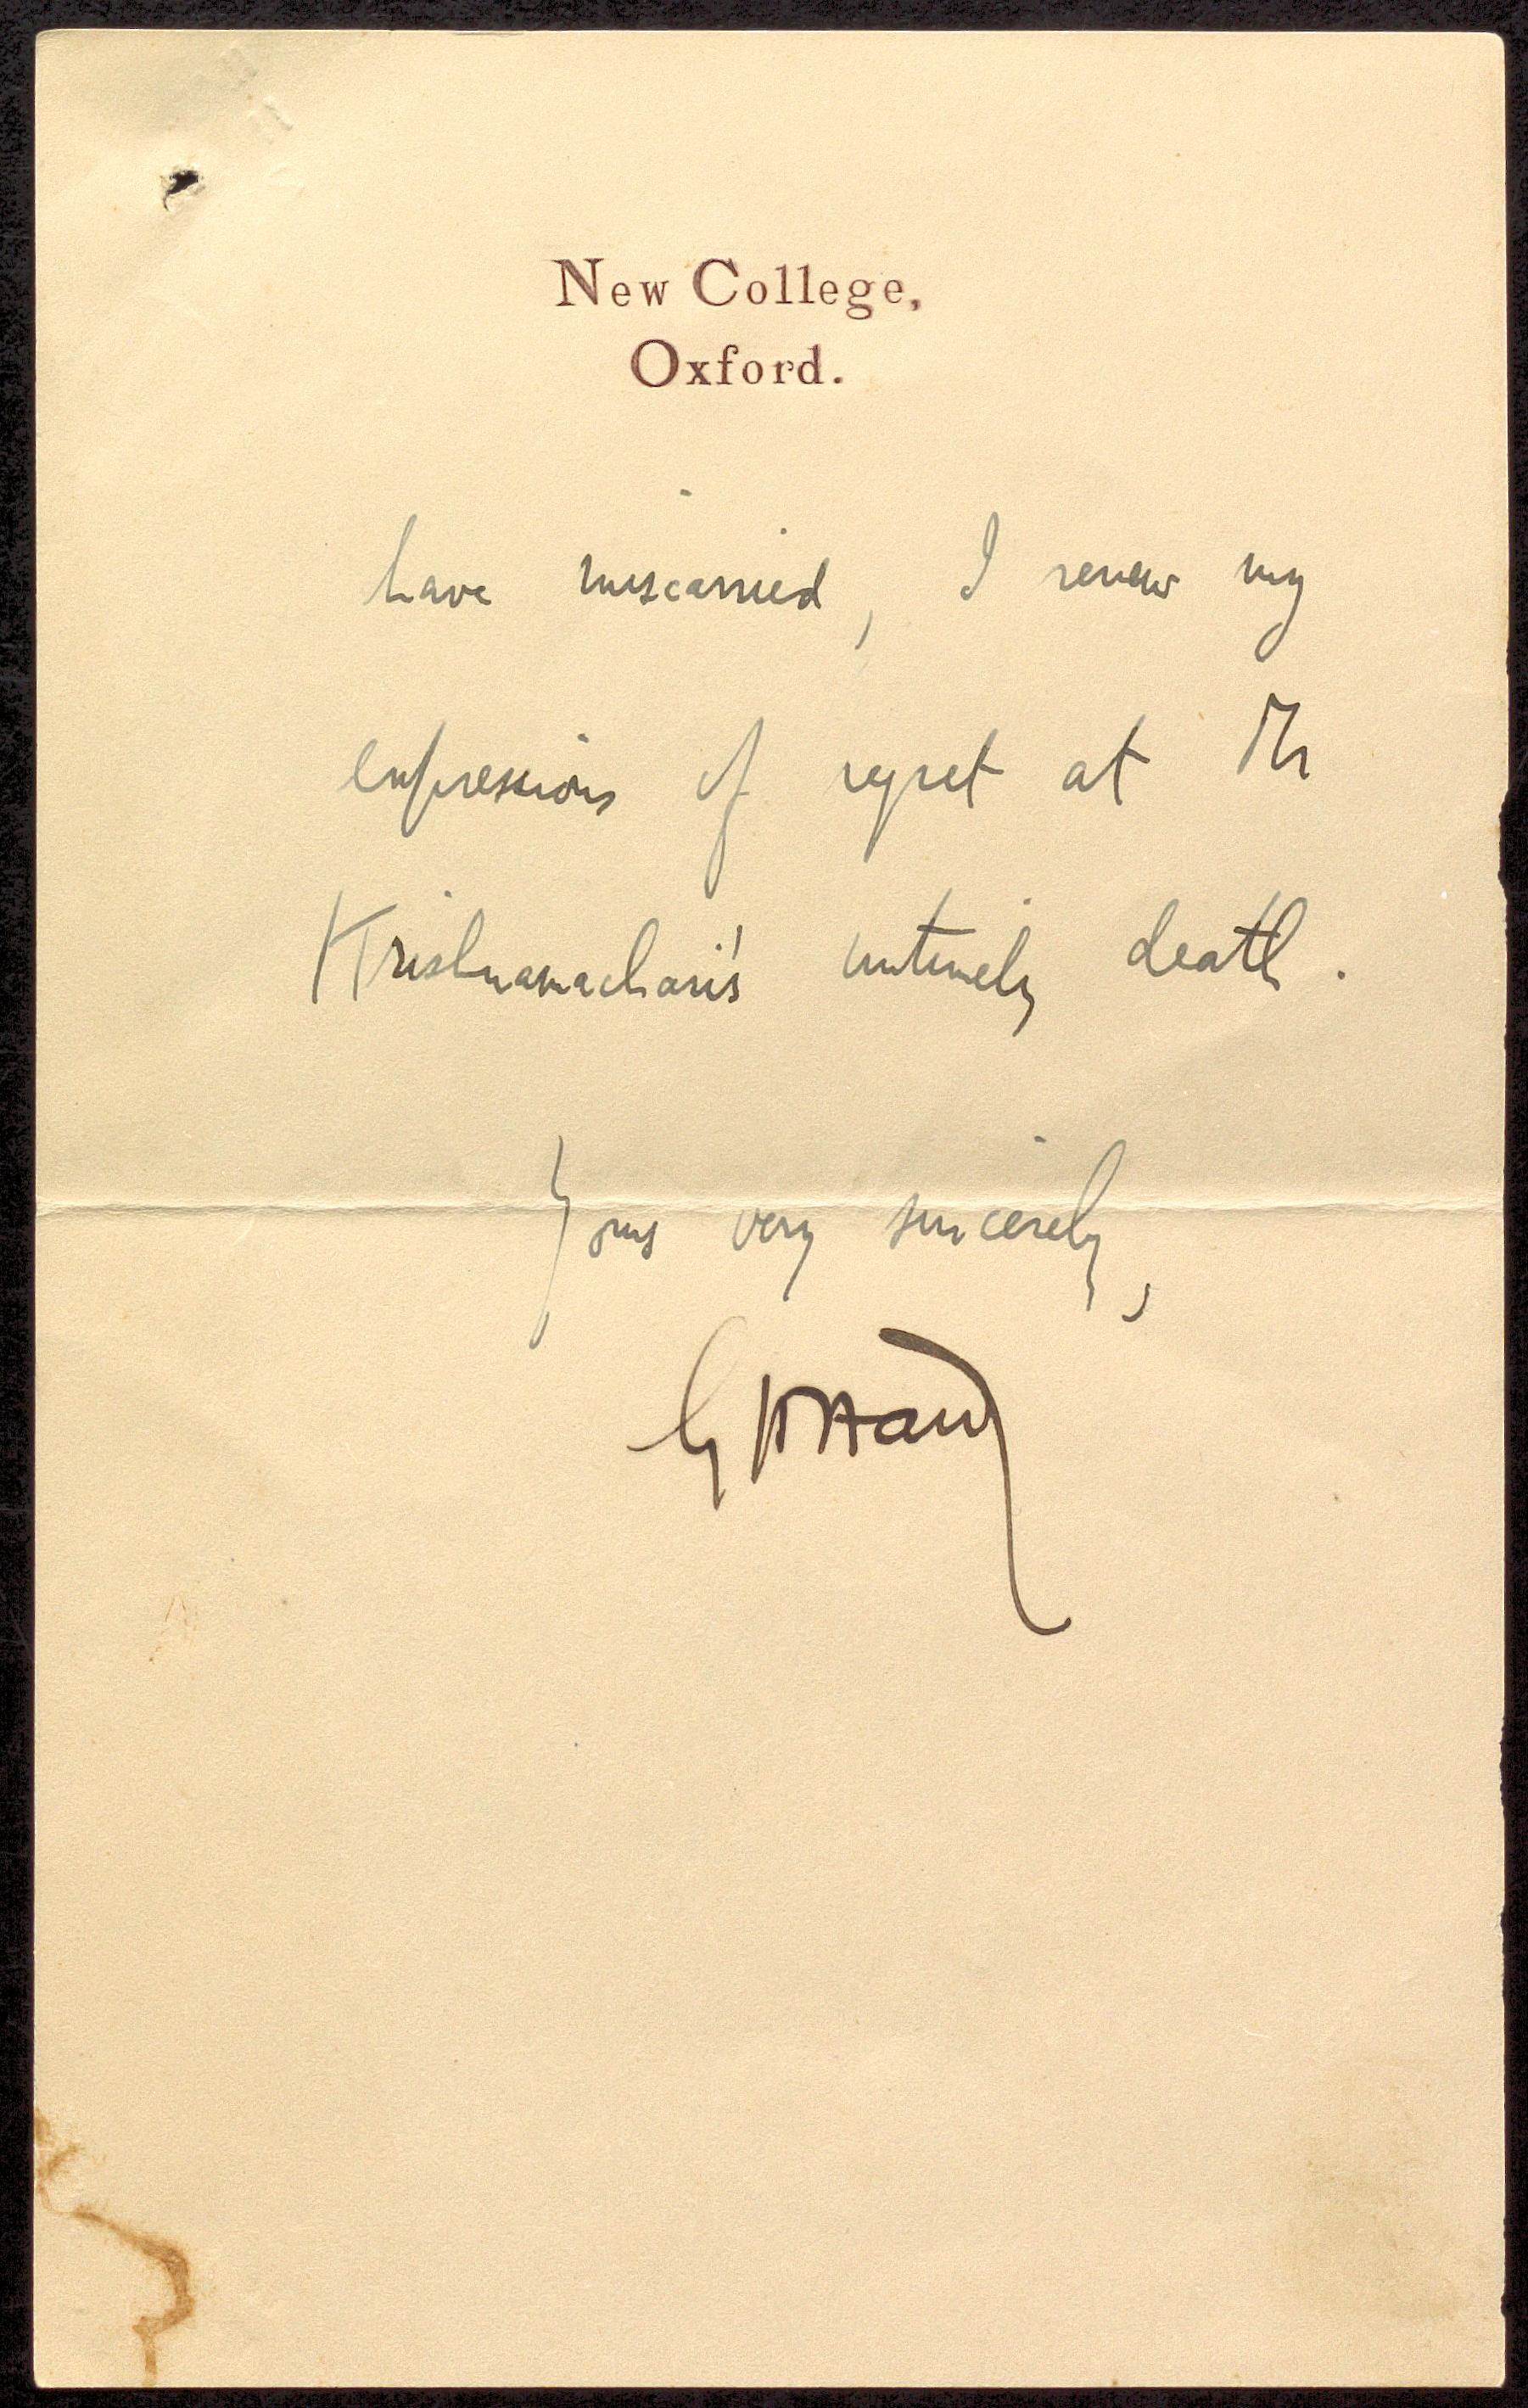 New College,
Oxford.
have miscarried, I renew my
expressions of regret at Mr
Krishnamachari's untimely death.
Yours very sincerely,
G H Hardy